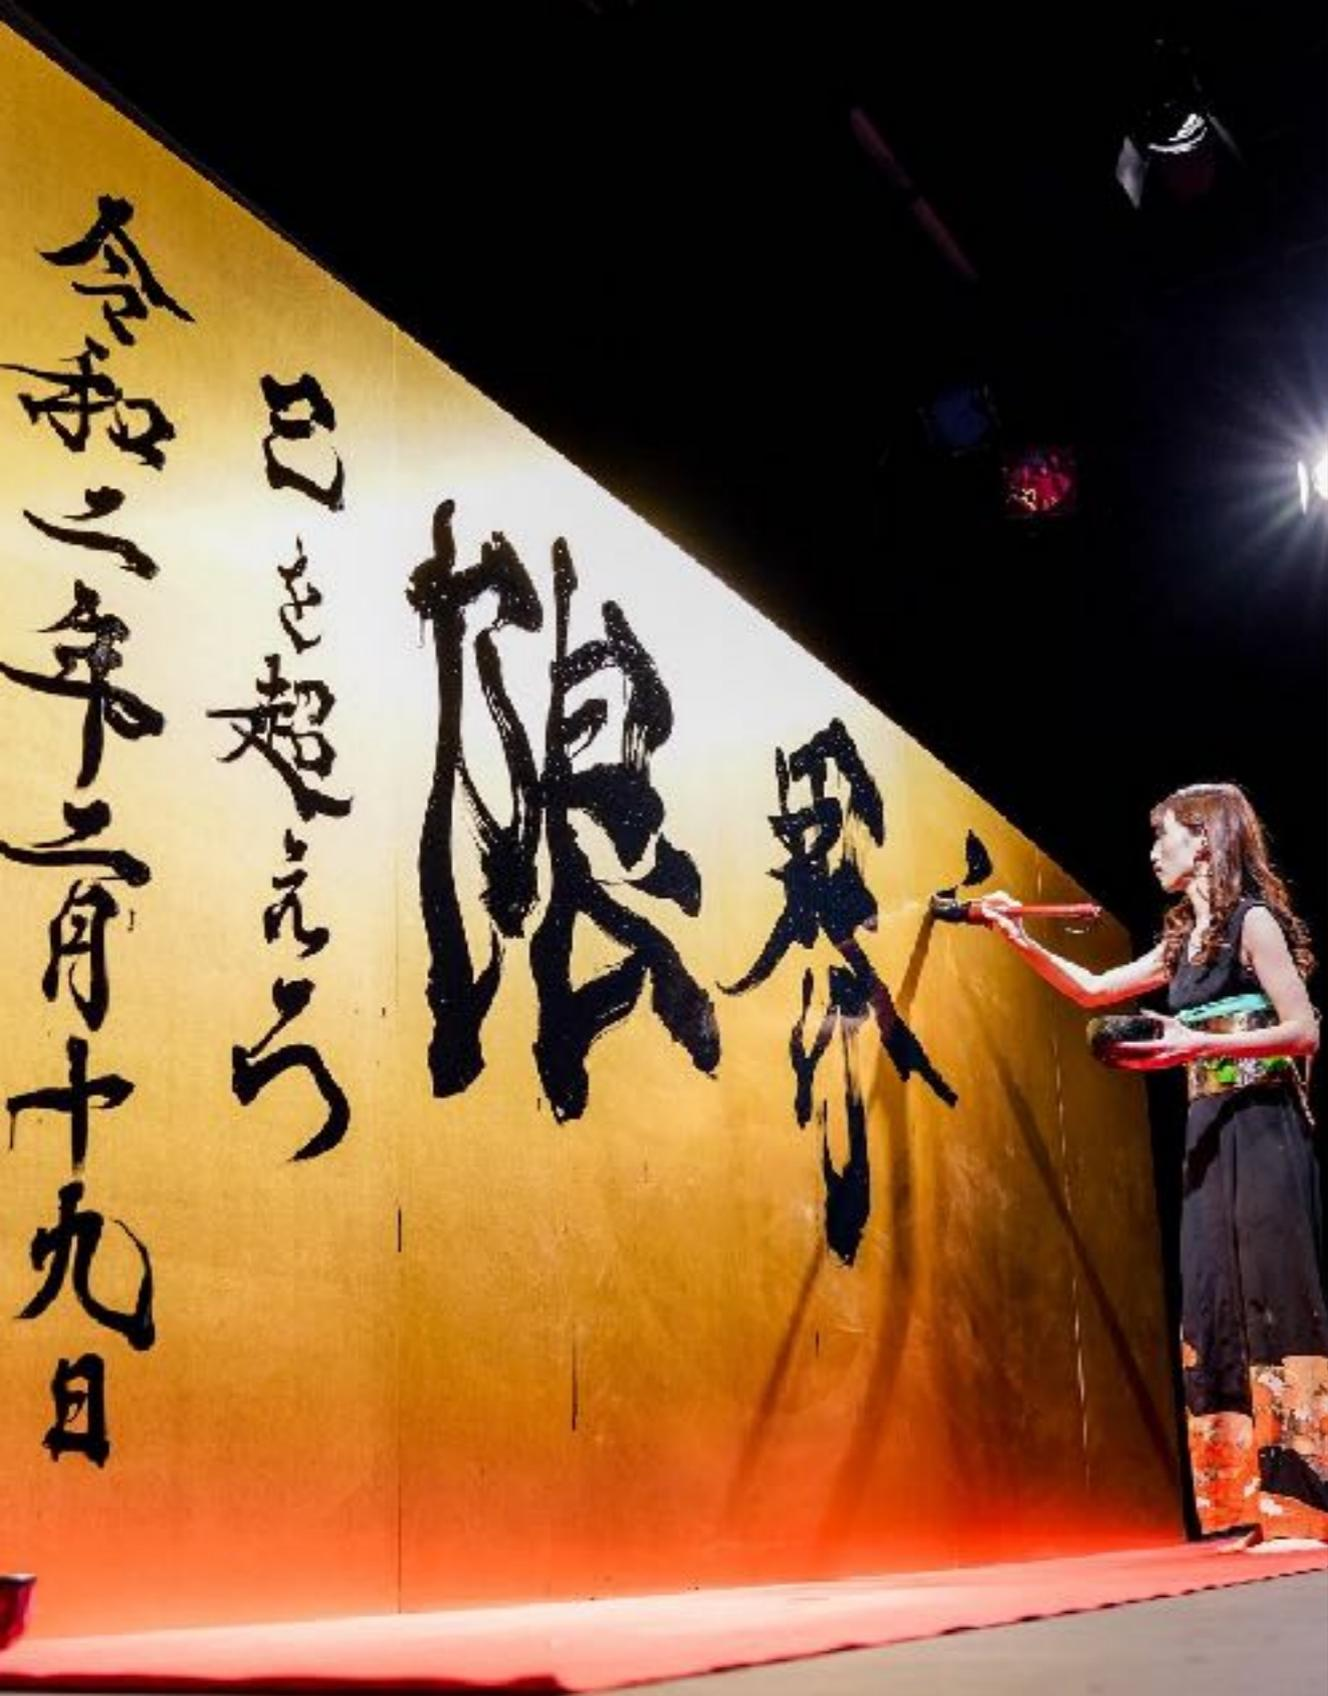 限界
己を超えろ
令和二年二月十九日